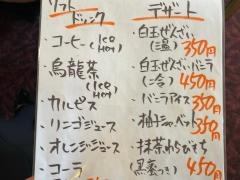 ソフト
ドリンク
・コーヒー(ICE HOT)
・烏龍茶(ICE HOT)
・カルピス
・リンゴジュース
・オレンジジュース
・コーラ
デザート
・白玉ぜんざい
(温) 350円
・白玉ぜんざいバニラ
(冷) 450円
・バニラアイス 350円
・柚子シャーベット 350円
・抹茶わらびもち
(黒蜜つき) 450円